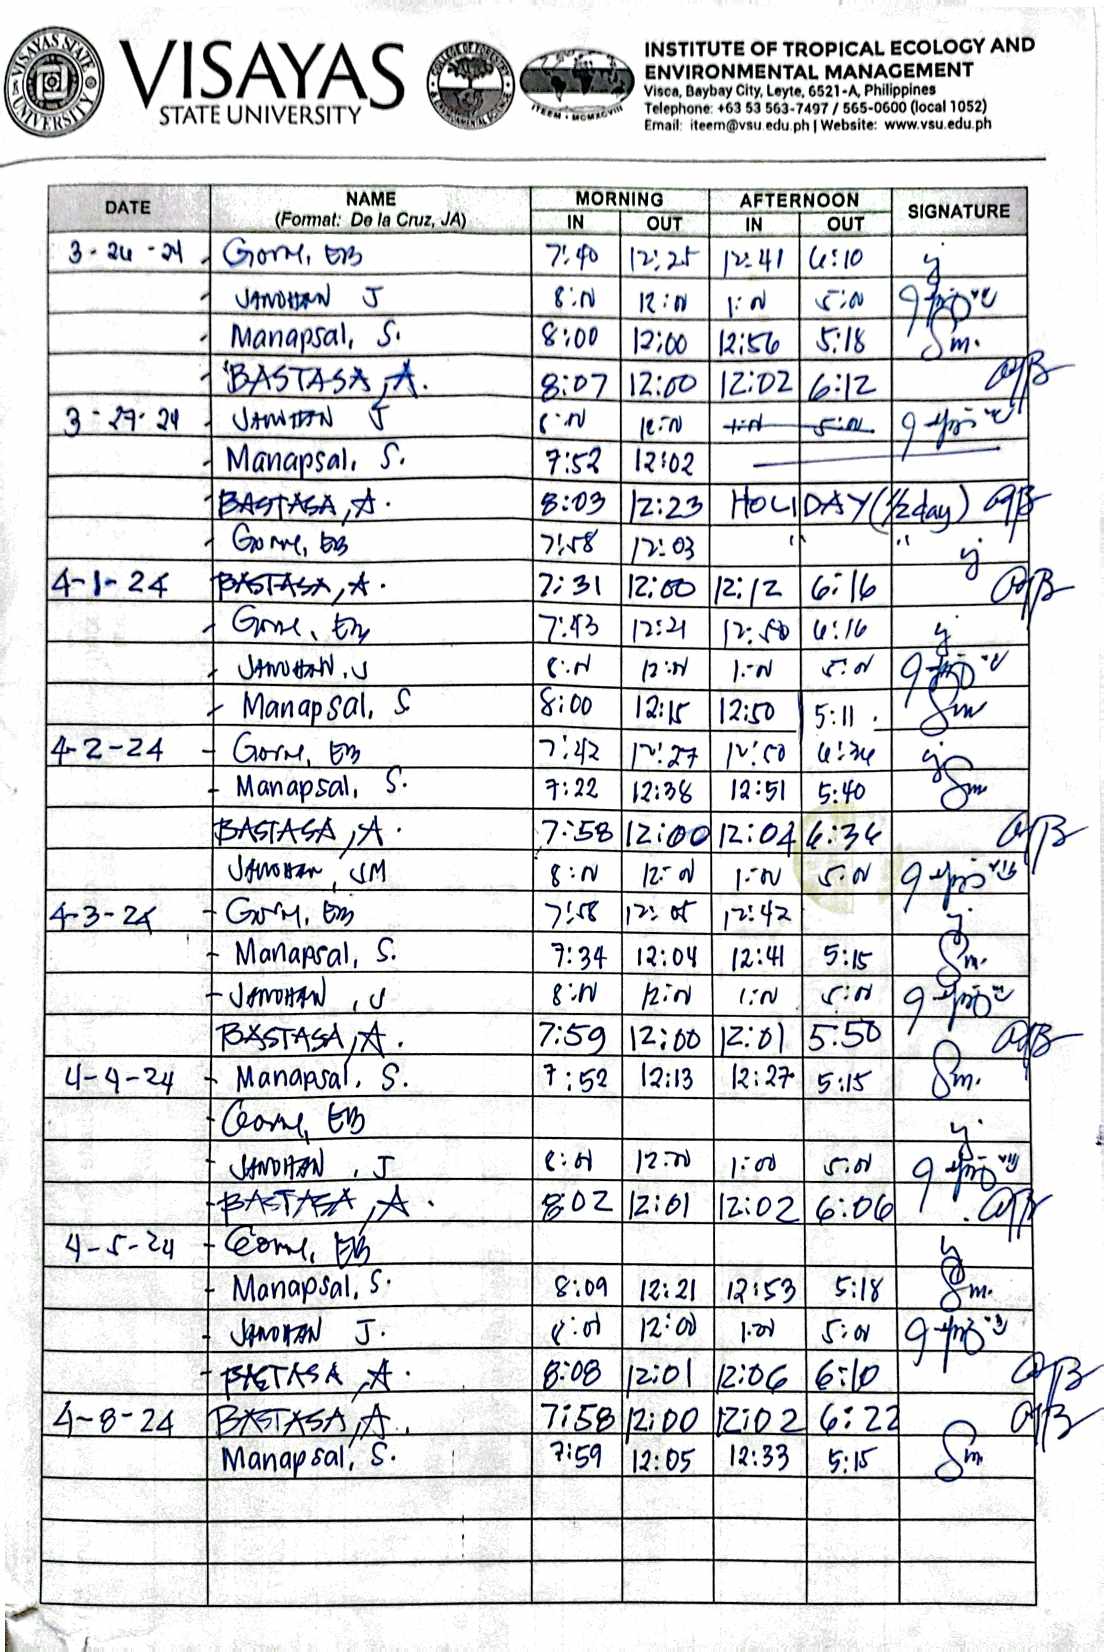 VISAYAS
STATE UNIVERSITY
INSTITUTE OF TROPICAL ECOLOGY AND
ENVIRONMENTAL MANAGEMENT
Visca, Baybay City, Leyte, 6521-A, Philippines
Telephone: +63 53 563-7497 / 565-0600 (local 1052)
Email: iteem@vsu.edu.ph | Website: www.vsu.edu.ph
DATE NAME (Format: De la Cruz, JA) MORNING AFTERNOON SIGNATURE
IN OUT IN OUT
3-26-24 Gorne, EB 7:40 12:25 12:41 6:10
JANDHAN J 8:00 12:00 1:00 5:00
Manapsal, S. 8:00 12:00 12:56 5:18 Sm.
BASTASA, A. 8:07 12:00 12:02 6:12
3-27-24 JANDHAN J 8:00 12:00 1:00 5:00
Manapsal, S. 7:52 12:02
BASTASA, A. 8:03 12:23 HOLIDAY (1/2 day)
Gorne, EB 7:58 12:03 " "
4-1-24 BASTASA, A. 7:31 12:00 12:12 6:16
Gorne, EB 7:43 12:21 12:50 6:16
JANDHAN, J 8:00 12:00 1:00 5:00
Manapsal, S 8:00 12:15 12:50 5:11 Sm
4-2-24 Gorne, EB 7:42 12:27 12:50 6:36
Manapsal, S. 7:22 12:38 12:51 5:40 Sm
BASTASA, A. 7:58 12:00 12:04 6:36
JANDHAN, JM 8:00 12:00 1:00 5:00
4-3-24 Gorne, EB 7:58 12:05 12:42
Manapsal, S. 7:34 12:04 12:41 5:15 Sm.
JANDHAN, J 8:00 12:00 1:00 5:00
BASTASA, A. 7:59 12:00 12:01 5:50
4-4-24 Manapsal, S. 7:52 12:13 12:27 5:15 Sm.
Gorne, EB
JANDHAN, J 8:00 12:00 1:00 5:00
BASTASA, A. 8:02 12:01 12:02 6:06
4-5-24 Gorne, EB
Manapsal, S. 8:09 12:21 12:53 5:18 Sm.
JANDHAN J. 8:00 12:00 1:00 5:00
BASTASA, A. 8:08 12:01 12:06 6:10
4-8-24 BASTASA, A. 7:58 12:00 12:02 6:22
Manapsal, S. 7:59 12:05 12:33 5:15 Sm